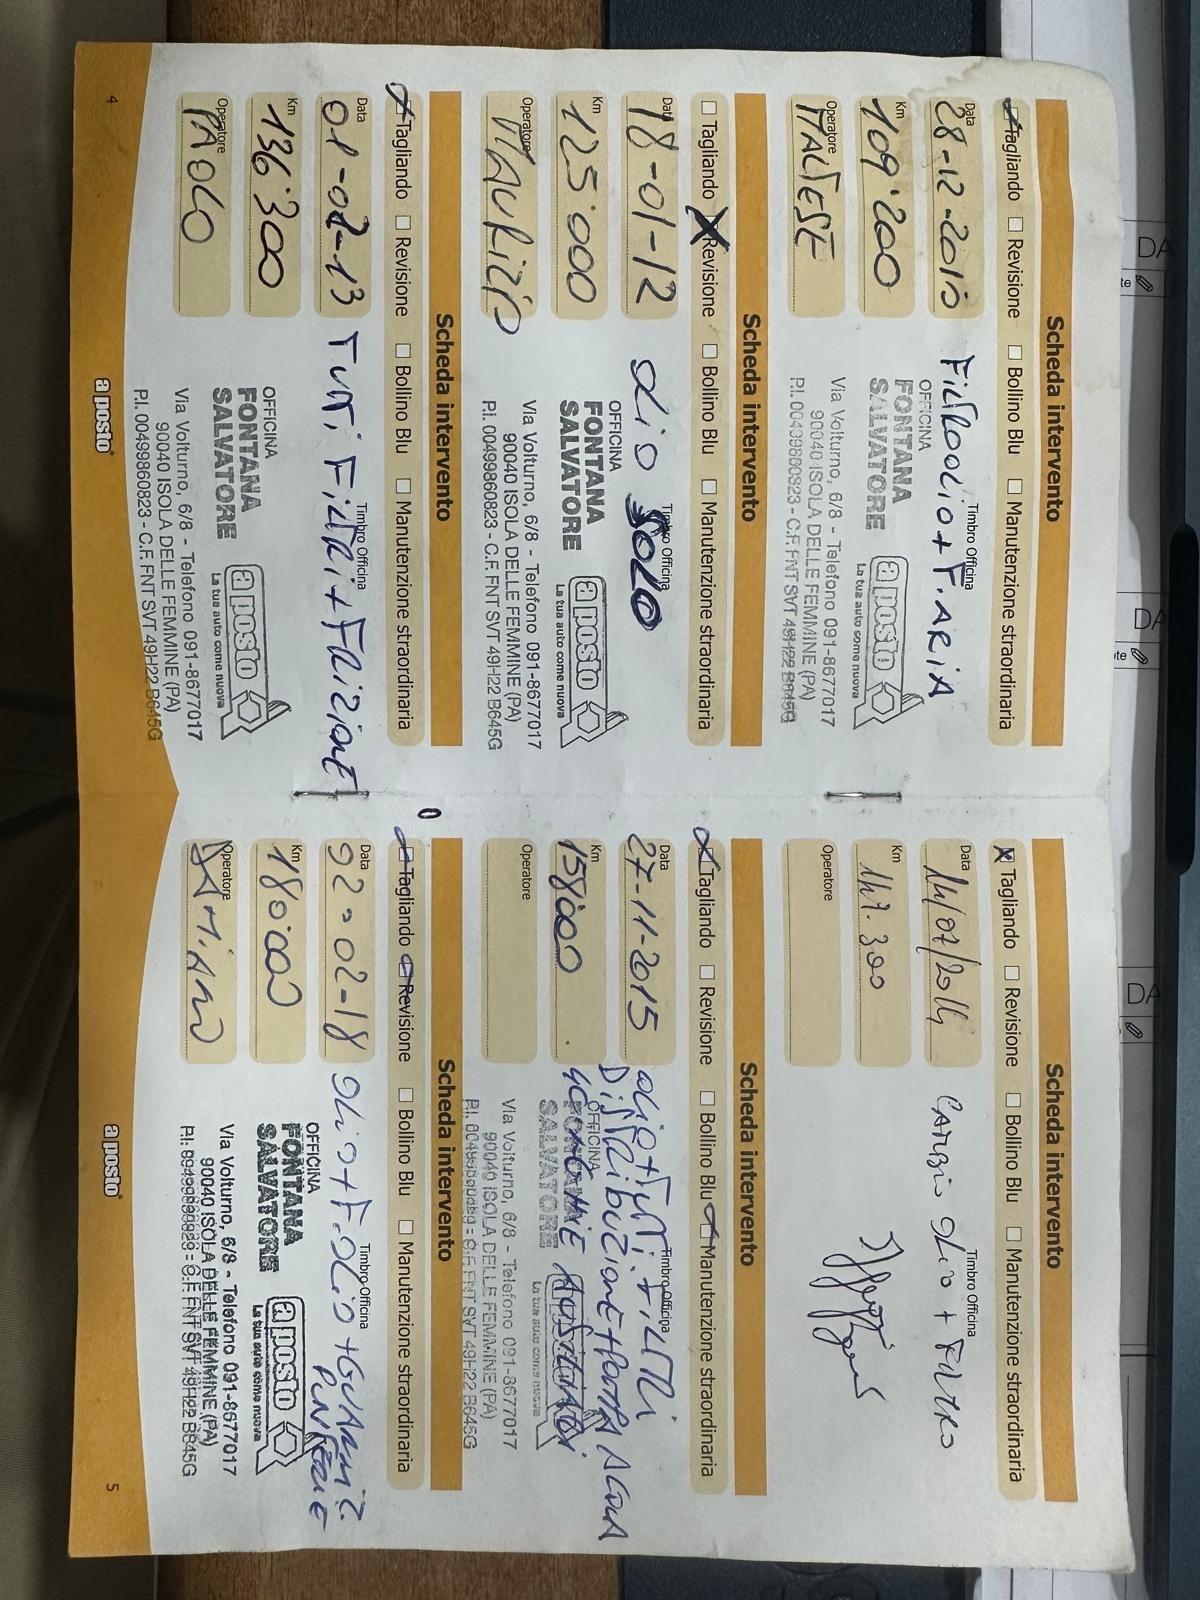 Scheda intervento
Tagliando Revisione Bollino Blu Manutenzione straordinaria
Data
28-12-2010
Timbro Officina
FiltrooLio + F. ARIA
Km
109'200
Operatore
MALTESE
OFFICINA
FONTANA
SALVATORE
a posto
La tua auto come nuova
Via Volturno, 6/8 - Telefono 091-8677017
90040 ISOLA DELLE FEMMINE (PA)
P.I. 00499860823 - C.F. FNT SVT 49H22 B645G
Scheda intervento
Tagliando Revisione Bollino Blu Manutenzione straordinaria
Data
18-01-12
Timbro Officina
OLIO SOLO
Km
125'000
Operatore
MAURIZIO
OFFICINA
FONTANA
SALVATORE
a posto
La tua auto come nuova
Via Volturno, 6/8 - Telefono 091-8677017
90040 ISOLA DELLE FEMMINE (PA)
P.I. 00499860823 - C.F. FNT SVT 49H22 B645G
Scheda intervento
Tagliando Revisione Bollino Blu Manutenzione straordinaria
Data
01-02-13
Timbro Officina
TUTTi FiLTRi + FRIZIONE
Km
136'300
Operatore
PAOLO
OFFICINA
FONTANA
SALVATORE
a posto
La tua auto come nuova
Via Volturno, 6/8 - Telefono 091-8677017
90040 ISOLA DELLE FEMMINE (PA)
P.I. 00499860823 - C.F. FNT SVT 49H22 B645G
4
a posto
Scheda intervento
Tagliando Revisione Bollino Blu Manutenzione straordinaria
Data
14/07/2014
Timbro Officina
CAMBIO OLIO + FILTRO
Km
147.300
Operatore
Scheda intervento
Tagliando Revisione Bollino Blu Manutenzione straordinaria
Data
27-11-2015
Timbro Officina
OLIO + TUTTi FiLTRi
DiSTRIBUZIONE + POMPA ACQUA
4 CANDELE
Km
158000
Operatore
OFFICINA
FONTANA
SALVATORE
a posto
La tua auto come nuova
Via Volturno, 6/8 - Telefono 091-8677017
90040 ISOLA DELLE FEMMINE (PA)
P.I. 00499860823 - C.F. FNT SVT 49H22 B645G
Scheda intervento
Tagliando Revisione Bollino Blu Manutenzione straordinaria
Data
02-02-18
Timbro Officina
OLIO + F. OLIO + GUARNIZ.
PUNTERIE
Km
180000
Operatore
DAMIANO
OFFICINA
FONTANA
SALVATORE
a posto
La tua auto come nuova
Via Volturno, 6/8 - Telefono 091-8677017
90040 ISOLA DELLE FEMMINE (PA)
P.I. 00499860823 - C.F. FNT SVT 49H22 B645G
a posto
5